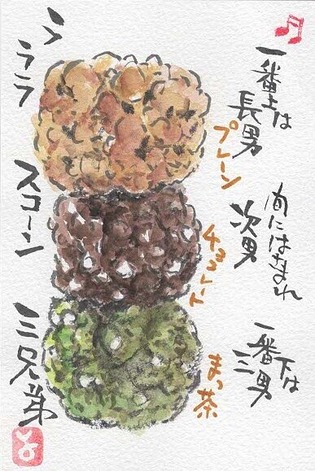 一番上は
長男
プレーン
間にはさまれ
次男
チョコレート
一番下は
三男
まっ茶
ラララ
スコーン
三兄弟
と